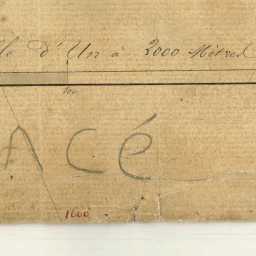 d'Un à 2000 Mètres
100
ACÉ
1600